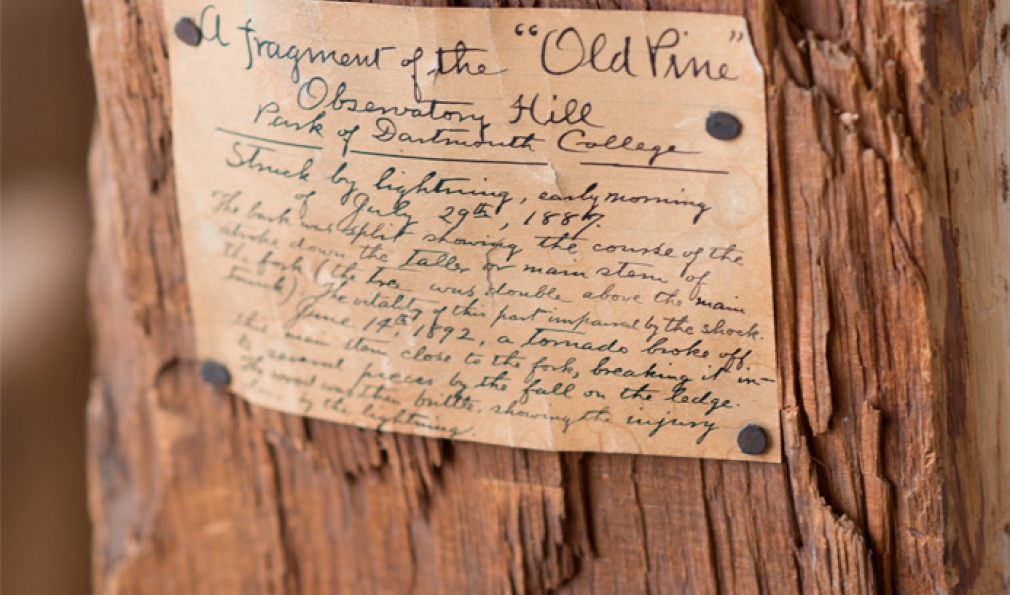 A fragment of the "Old Pine"
Observatory Hill
Park of Dartmouth College
Struck by lightning, early morning
of July 29th, 1887.
The bark was split showing the course of the
stroke down the taller or main stem of
the fork (the tree was double above the main
trunk) The vitality of this part impaired by the shock.
June 14th 1892, a tornado broke off
this main stem close to the fork, breaking it in-
to several pieces by the fall on the ledge.
The wood was then brittle, showing the injury
done by the lightning.